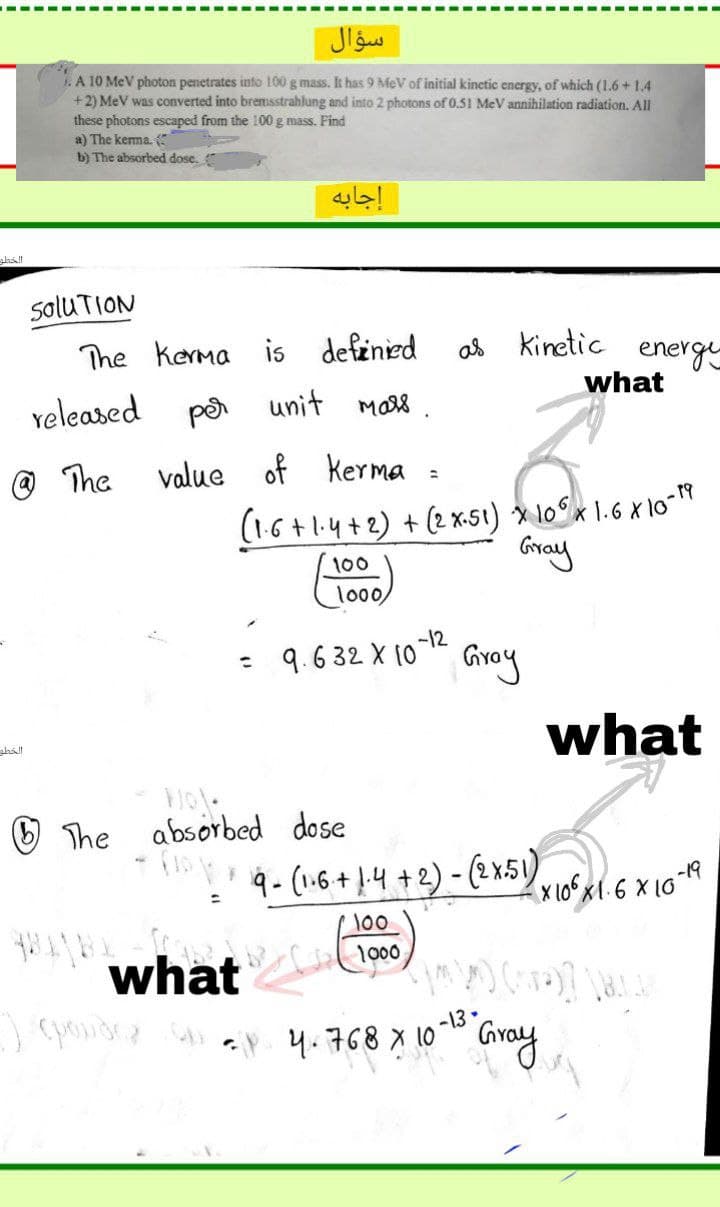 سؤال
A 10 MeV photon penetrates into 100 g mass. It has 9 MeV of initial kinetic energy, of which (1.6 + 1.4
+ 2) MeV was converted into bremsstrahlung and into 2 photons of 0.51 MeV annihilation radiation. All
these photons escaped from the 100 g mass. Find
a) The kerma.
b) The absorbed dose.
إجابه
SOLUTION
The Kerma is definied as Kinetic energy
what
released per unit mass.
ⓐ The value of Kerma =
(1.6+1.4+2) + (2x.51) x 10⁶ x 1.6 x 10⁻¹⁹
Gray
(100
1000)
= 9.632 X 10⁻¹² Gray
what
ⓑ The absorbed dose
= 9 - (1.6+1.4+2) - (2x.51) x10⁶x1.6 x 10⁻¹⁹
(100
1000)
what
= 4.768 x 10⁻¹³ Gray